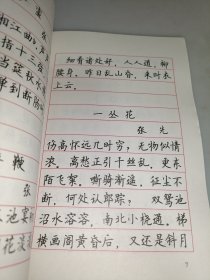 细看诸处好，人人道，柳
腰身。昨日乱山昏，来时衣
上云。
一丛花
张先
伤高怀远几时穷？无物似情
浓。离愁正引千丝乱，更东
陌飞絮，嘶骑渐遥，征尘不
断，何处认郎踪？　双鸳池
沼水溶溶，南北小桡通。梯
横画阁黄昏后，又还是斜月
7
湘江曲，
指十三
当筵秋
弹到断
张
池
花